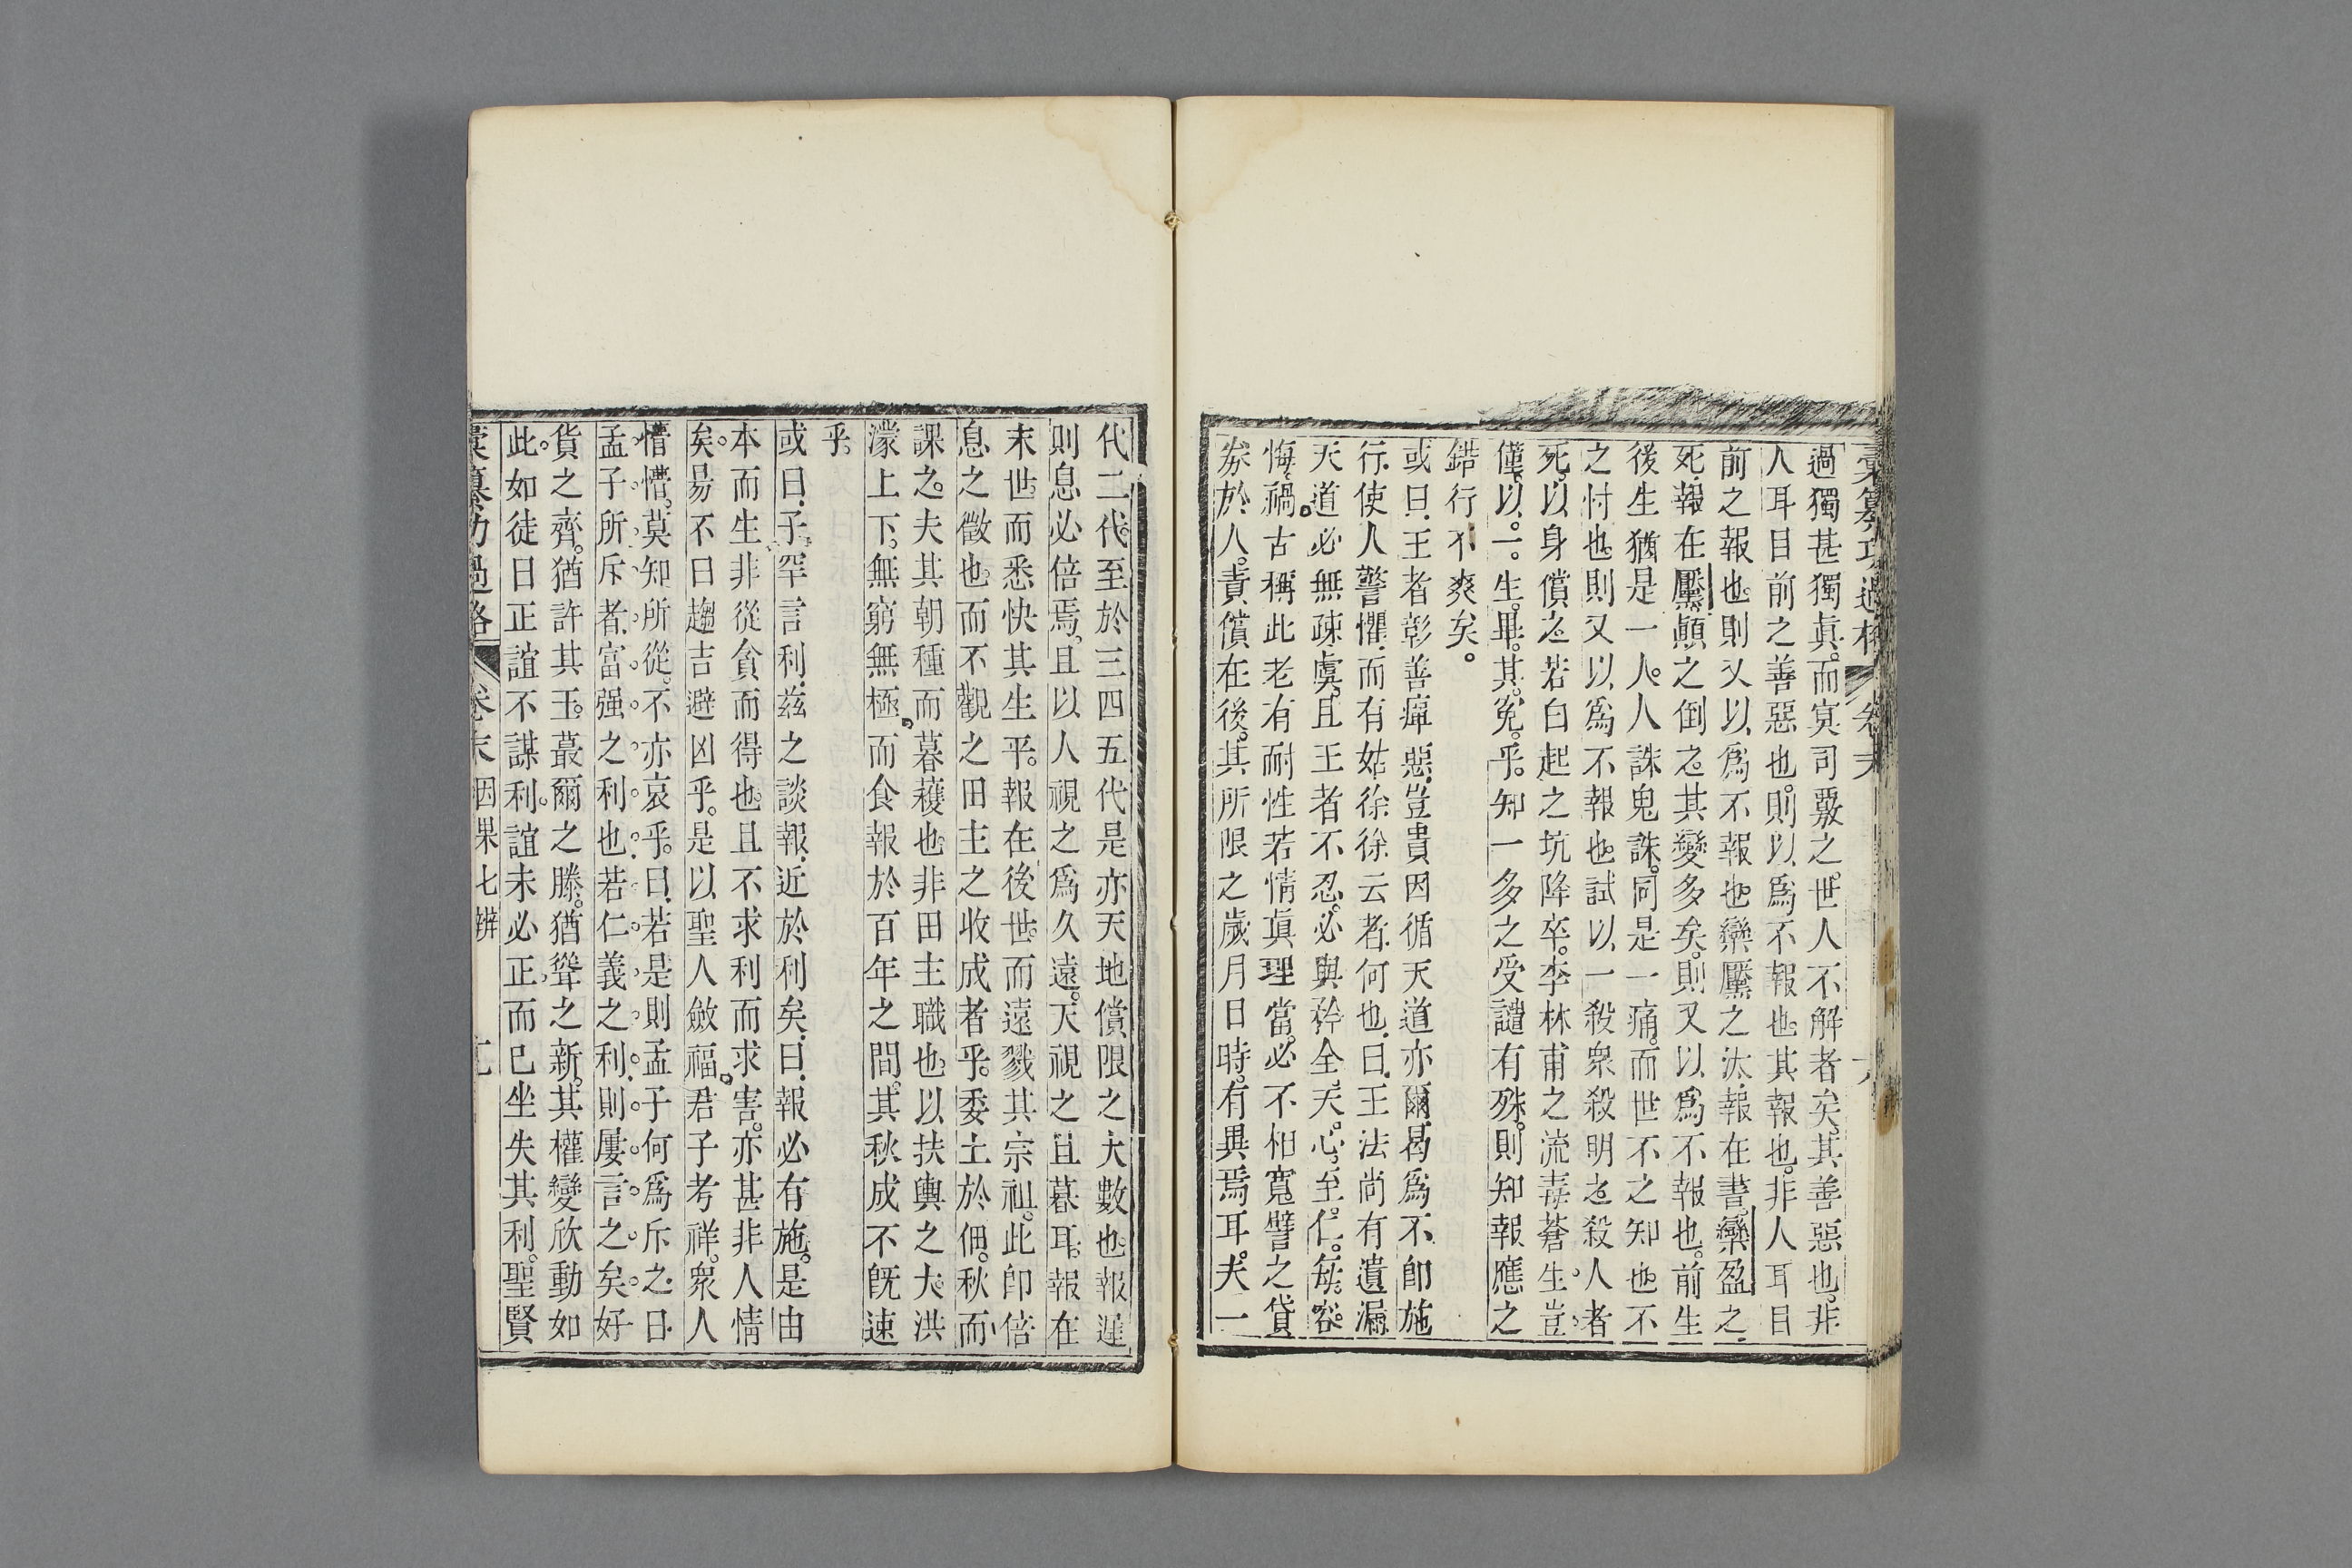 彙纂功過格 卷末
過獨甚獨眞。而冥司覈之。世人不解者矣。其善惡也。非
人耳目前之善惡也。則以爲不報也。其報也。非人耳目
前之報也。則又以爲不報也。欒黶之汰。報在書。欒盈之
死。報在黶。顛之倒之。其變多矣。則又以爲不報也。前生
後生猶是一人。人誅鬼誅。同是一痛。而世不之知也。不
之忖也。則又以爲不報也。試以一殺衆殺明之。殺人者
死。以身償之。若白起之坑降卒。李林甫之流毒蒼生。豈
僅以。一。生。畢。其。寃。乎。知一多之受譴有殊。則知報應之
錯行不爽矣。
或曰。王者彰善癉惡。豈貴因循。天道亦爾。曷爲不卽施
行。使人警懼。而有姑徐徐云者。何也。曰。王法尚有遺漏
天道必無疎虞。且王者不忍。必與矜全。天。心。至。仁。每。容。
悔禍。古稱此老有耐性。若情眞理當。必不相寬。譬之貸
劵於人。責償在後。其所限之歲月日時。有異焉耳。夫一
代二代。至於三四五代。是亦天地償限之大數也。報遲
則息必倍焉。且以人視之爲久遠。天視之且暮耳。報在
末世。而悉快其生平。報在後世。而遠戮其宗祖。此卽倍
息之徵也。而不觀之田主之收成者乎。委土於佃。秋而
課之。夫其朝種而暮穫也。非田主職也。以扶輿之大。洪
濛上下。無窮無極。而食報於百年之間。其秋成不旣速
乎。
或曰。子罕言利。茲之談報。近於利矣。曰。報必有施。是由
本而生。非從貪而得也。且不求利而求害。亦甚非人情
矣。易不曰趨吉避凶乎。是以聖人斂福。君子考祥。衆人
懵懵。莫知所從。不亦哀乎。曰。若是則孟子何爲斥之。曰
孟子所斥者。富强之利也。若仁義之利。則屢言之矣。好
貨之齊。猶許其王。蕞爾之滕。猶聳之新。其權變欣動如
此。如徒曰正誼不謀利。誼未必正。而已坐失其利。聖賢
彙纂功過格 卷末 因果七辨